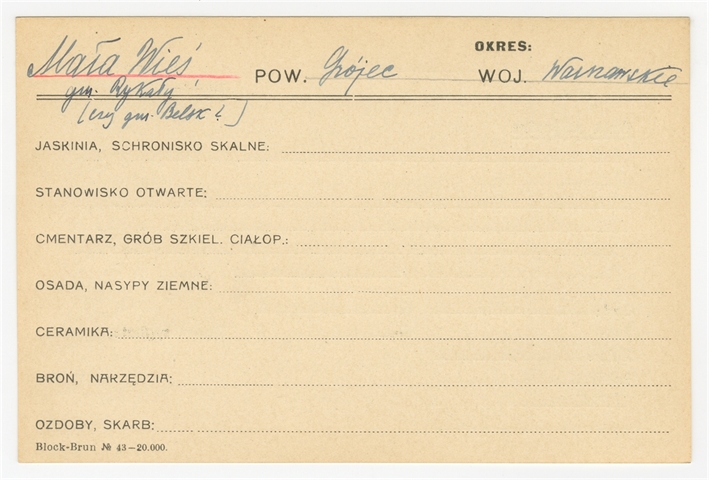 OKRES:
Mała Wieś POW. Grójec WOJ. Warszawskie
gm. Rykały
[czy gm. Belsk?]
JASKINIA, SCHRONISKO SKALNE:
STANOWISKO OTWARTE:
CMENTARZ, GRÓB SZKIEL. CIAŁOP.:
OSADA, NASYPY ZIEMNE:
CERAMIKA:
BROŃ, NARZĘDZIA:
OZDOBY, SKARB:
Block-Brun № 43—20.000.